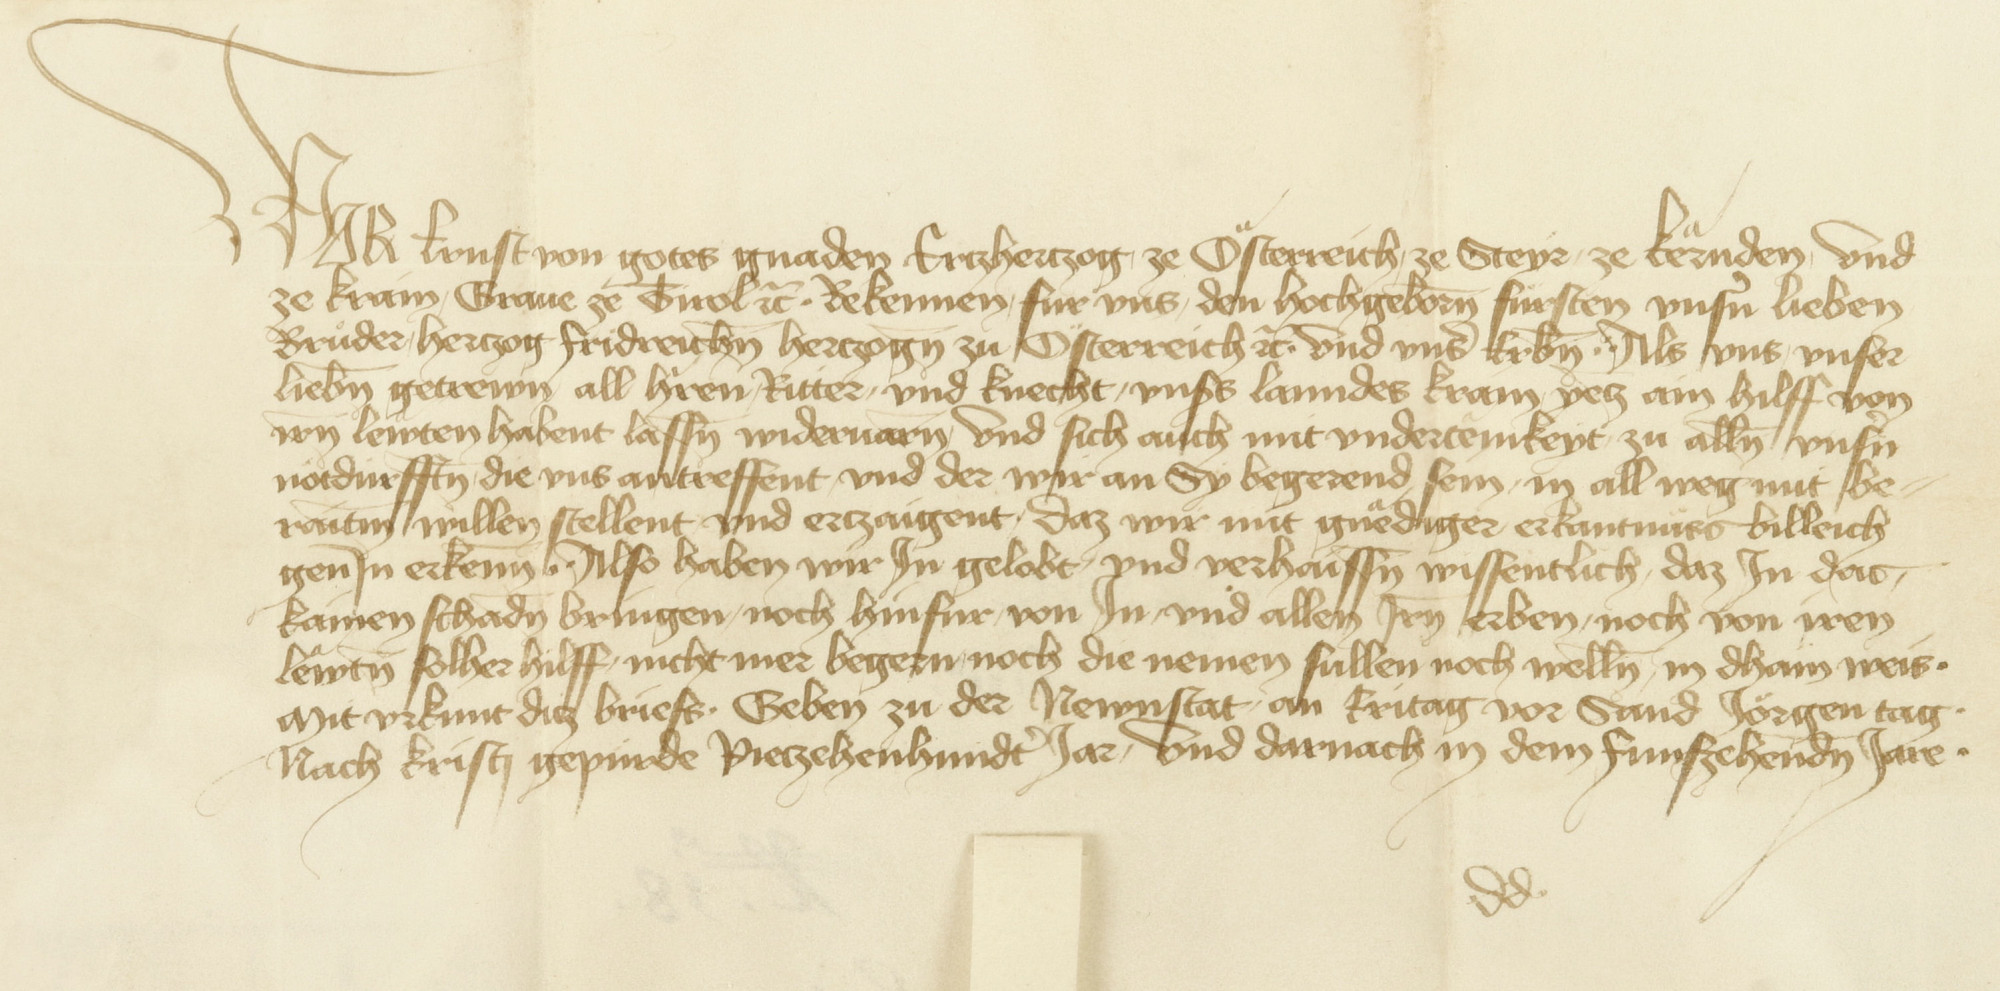 WIR Ernst von gotes gnaden Ertzhertzog ze Österreich ze Steyr ze kërnden Vnd
ze krain Graue ze Tirol etc̃. Bekennen für vns den hochgeborn̄ fürsten vnsn̄ lieben
Brůder hertzog fridreichn̄ hertzogn̄ zu Österreich etc̃. Vnd vns̄ Erbn̄. Als vns vnser
liebn̄ getrewn all hr̄en Ritter vnd knecht vnss lanndes krain yetz ain hilff von
irn̄ lewten habent lassn̄ wideruarn̄ Vnd sich auch mit vndertënikeyt zu alln̄ vnsn̄
notdurfftn̄ die vns antreffent vnd der wir an Sy begerend sein in all weg mit be-
raitm̄ willen stellent vnd ertzaigent daz wir mit gnëdiger erkantnüss billeich
gen In erkenn̄. Also haben wir In gelobt vnd verhaissn̄ wissentlich daz In daz
kainen schadn̄ bringen noch hinfur von In vnd allen Irn̄ erben noch von iren
lewtn̄ solher hilff nicht mer begern noch die nemen sullen noch welln̄ in dhain weis.
Mit vrkunt ditz briefs. Geben zu der Newnstat an Eritag vor Sand Jörgen tag.
Nach kristj gepurde Vietzehenhundt̄ Jar Vnd darnach in dem funfzehendn̄ Jare.
dd.